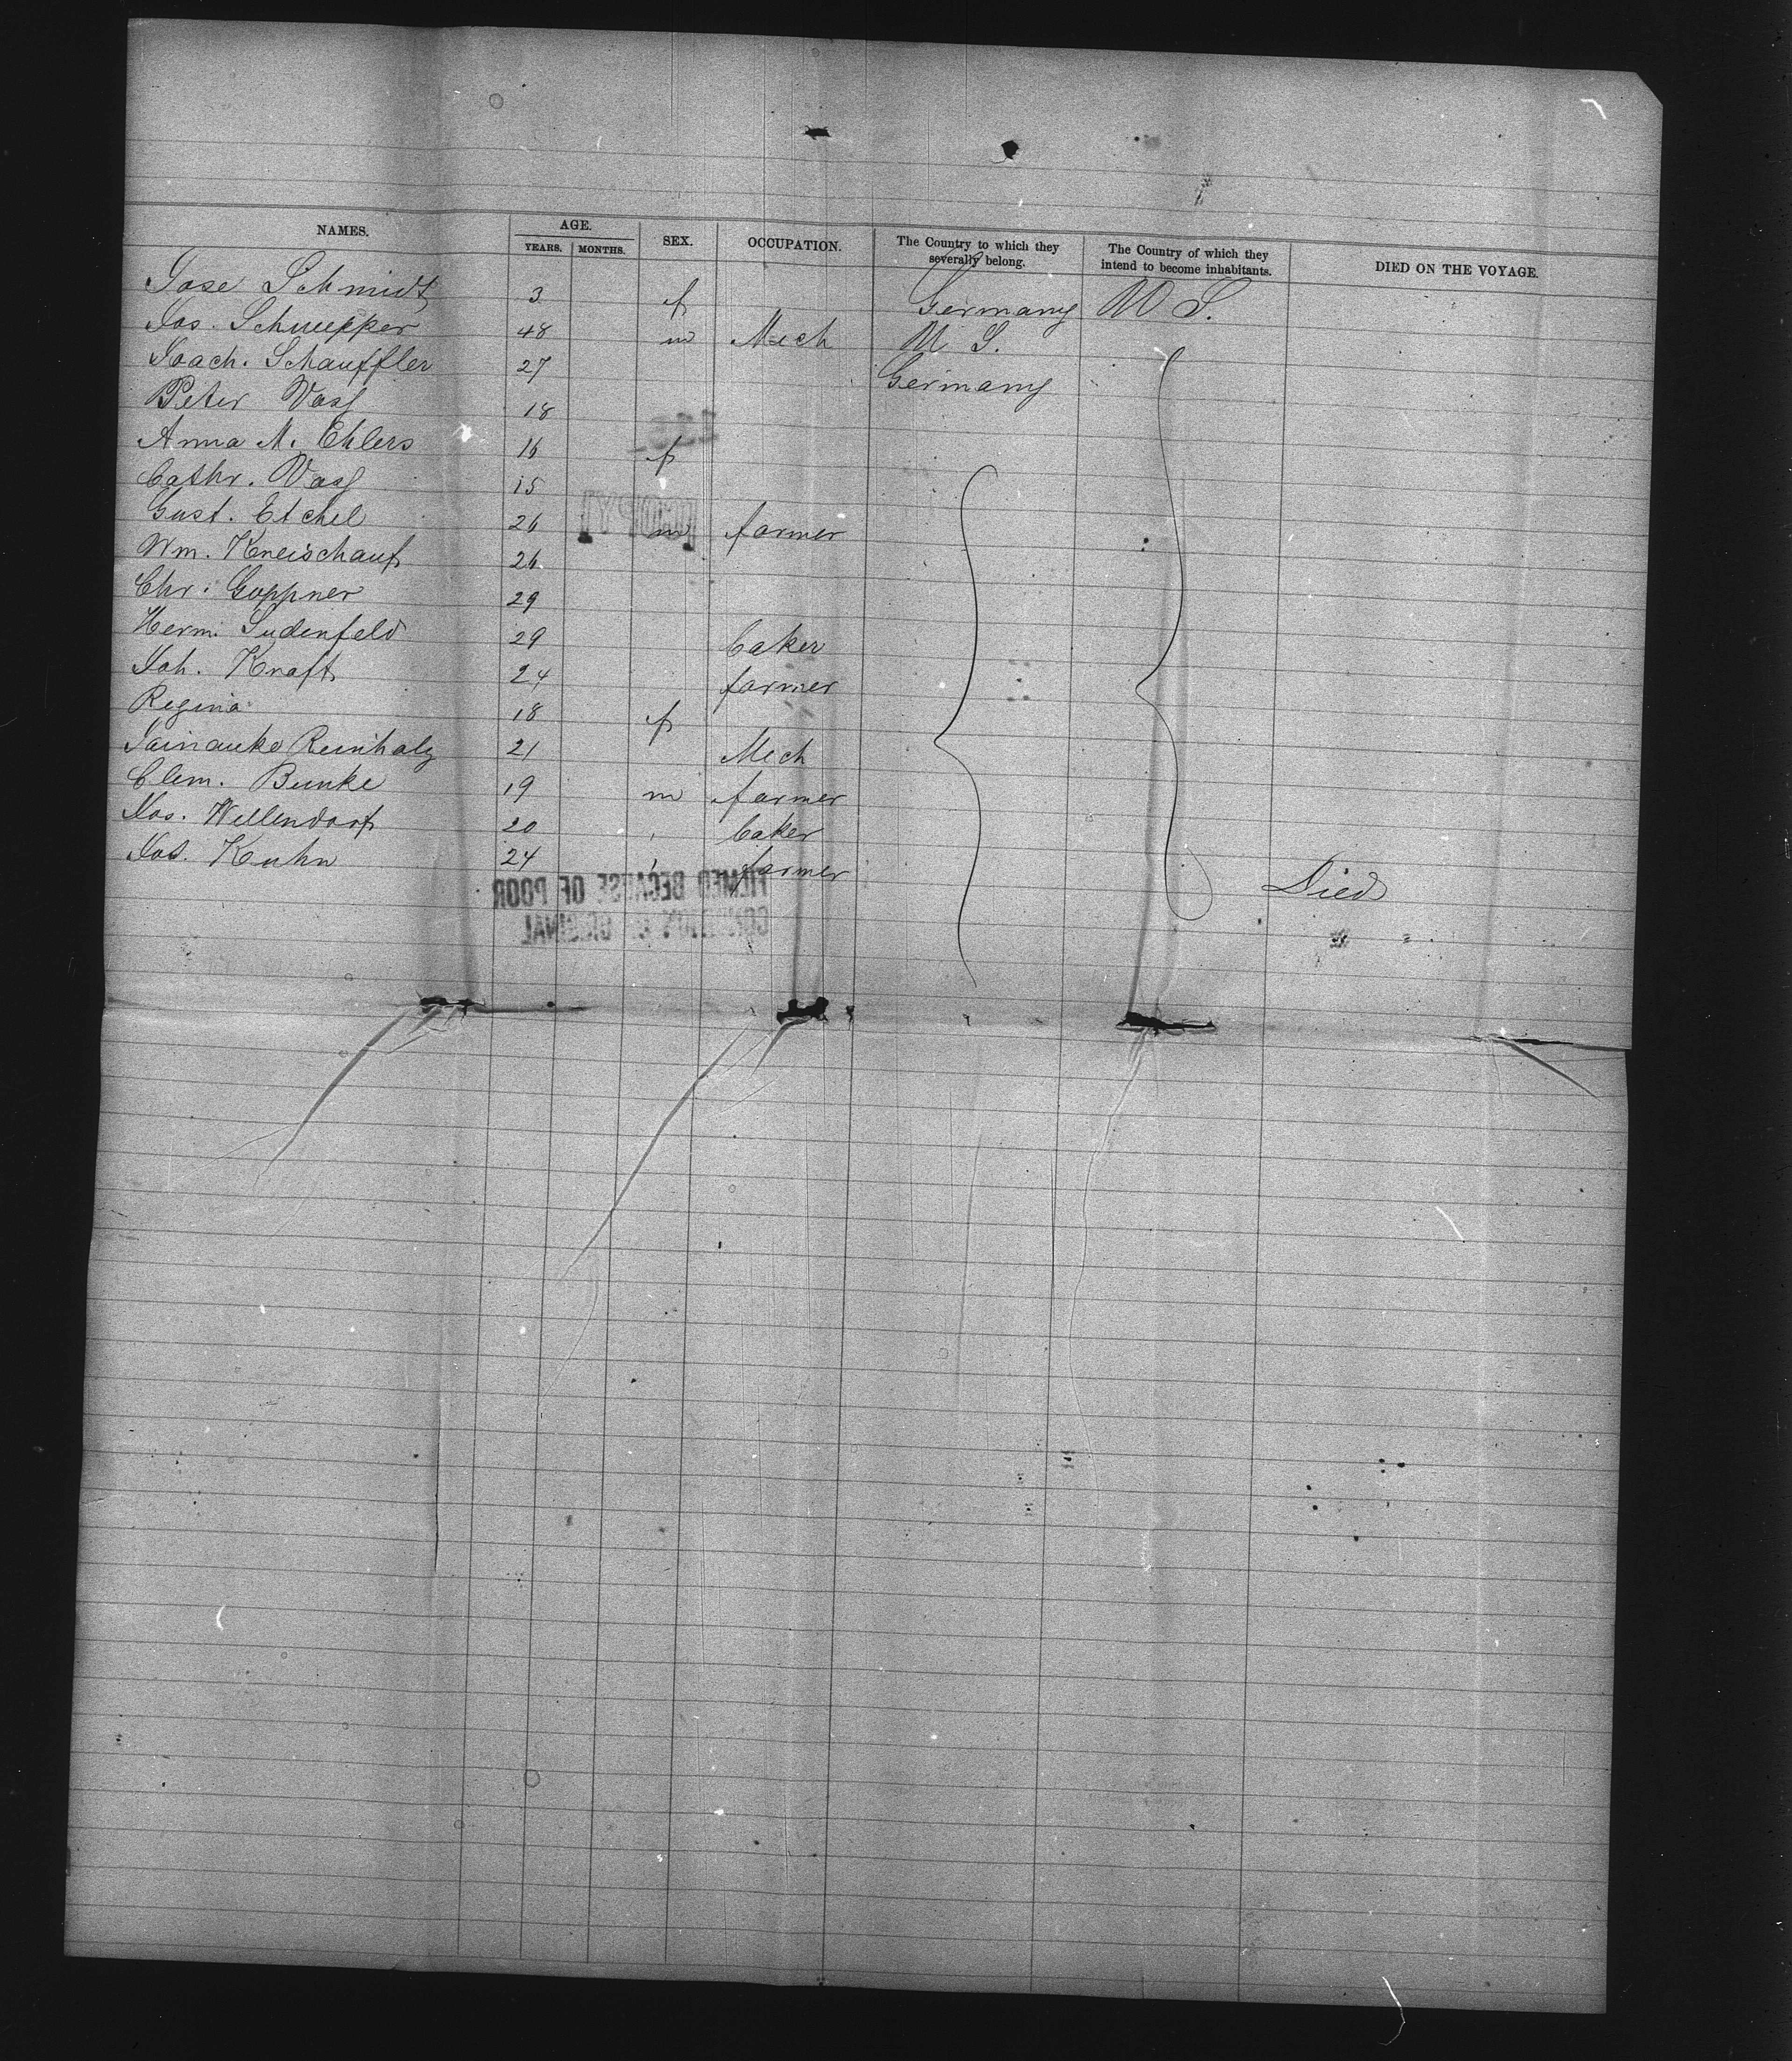 NAMES. AGE. SEX. OCCUPATION. The Country to which they severally belong. The Country of which they intend to become inhabitants. DIED ON THE VOYAGE.
YEARS. MONTHS.
Jose Schmidt 3 f Germany U S.
Jos. Schnepper 48 m Mech U S.
Joach. Schauffler 27 Germany
Peter Vass 18
Anna M. Ehlers 16 f
Cathr. Vass 15
Gust. Etchel 26 m farmer
Wm. Kneischauf 26
Chr. Goppner 29
Herm. Sudenfeld 29 baker
Joh. Kraft 24 farmer
Regina 18 f
Reinholz 21 Mech
Clem. Bunke 19 m farmer
Jos. Wellendorf 20 baker
Jos. Kuhn 24 farmer Died
[COPY]
FILMED BECAUSE OF POOR
CONDITION OF ORIGINAL